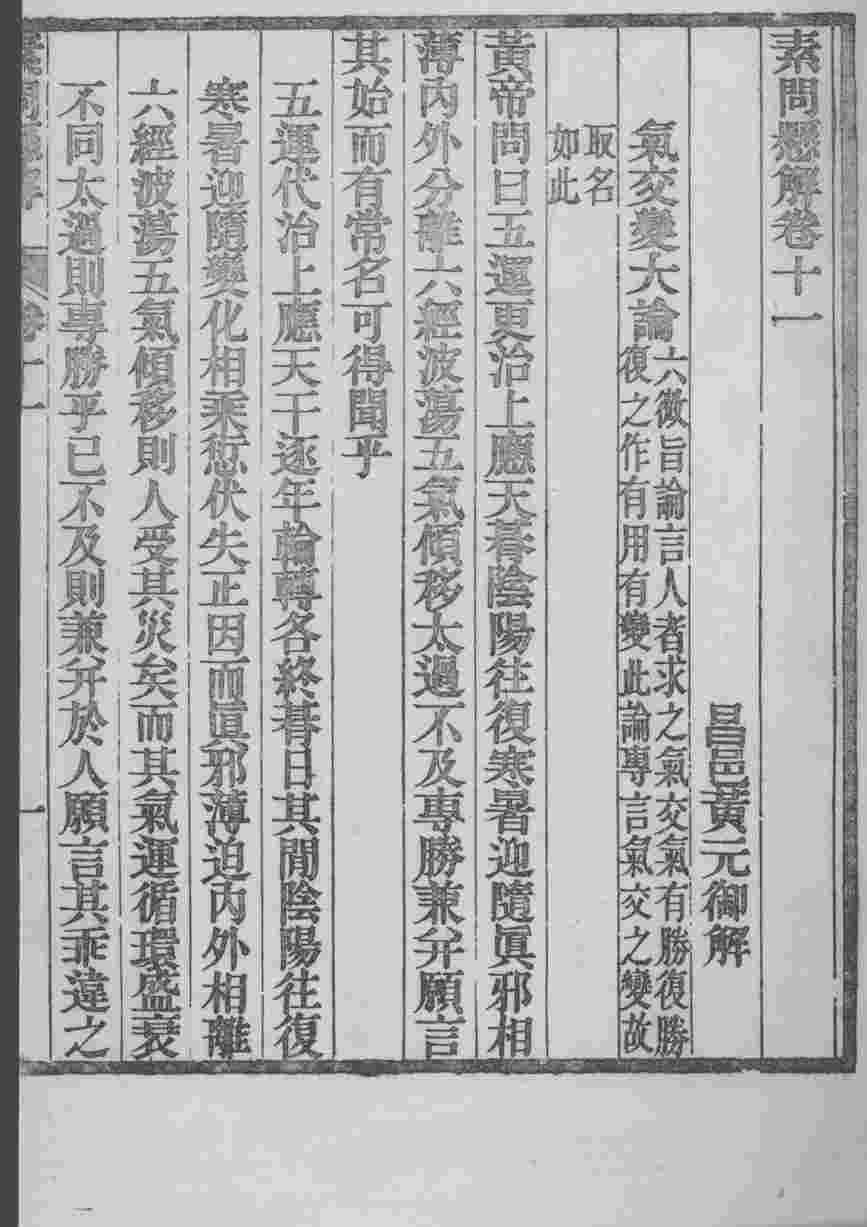 素問懸解卷十一
昌邑黃元御解
氣交變大論六微旨論言人者求之氣交氣有勝復勝
復之作有用有變此論專言氣交之變故
取名
如此
黃帝問曰五運更治上應天朞陰陽往復寒暑迎隨眞邪相
薄內外分離六經波蕩五氣傾移太過不及專勝兼幷願言
其始而有常名可得聞乎
五運代治上應天干逐年輪轉各終朞日其閒陰陽往復
寒暑迎隨變化相乘愆伏失正因而眞邪薄迫內外相離
六經波蕩五氣傾移則人受其災矣而其氣運循環盛衰
不同太過則專勝乎已不及則兼幷於人願言其乖違之
素問懸解
卷十一
一